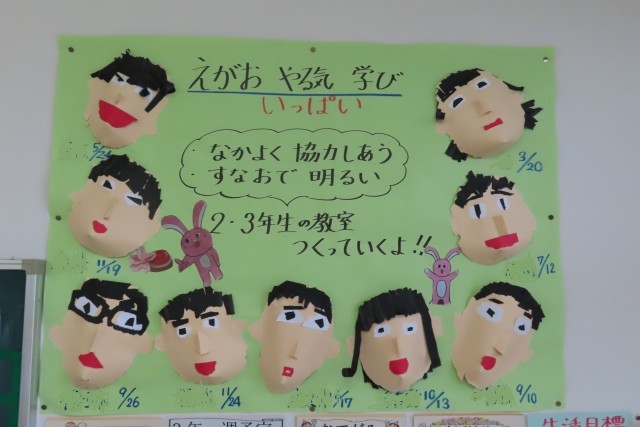 えがお やる気 学び
いっぱい
・なかよく 協力しあう
・すなおで 明るい
2・3年生の教室
つくっていくよ!!
5/24
3/20
11/19
7/12
9/26
11/24
17
10/13
9/10
生活目標